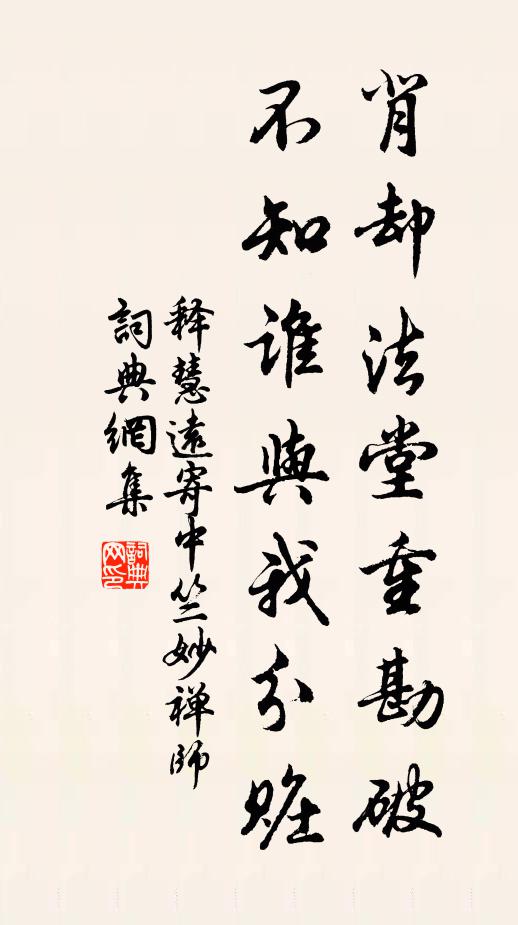 背却法堂重勘破
不知谁與我分賍
释慧遠寄中竺妙禅師
詞典網集
詞典
网印